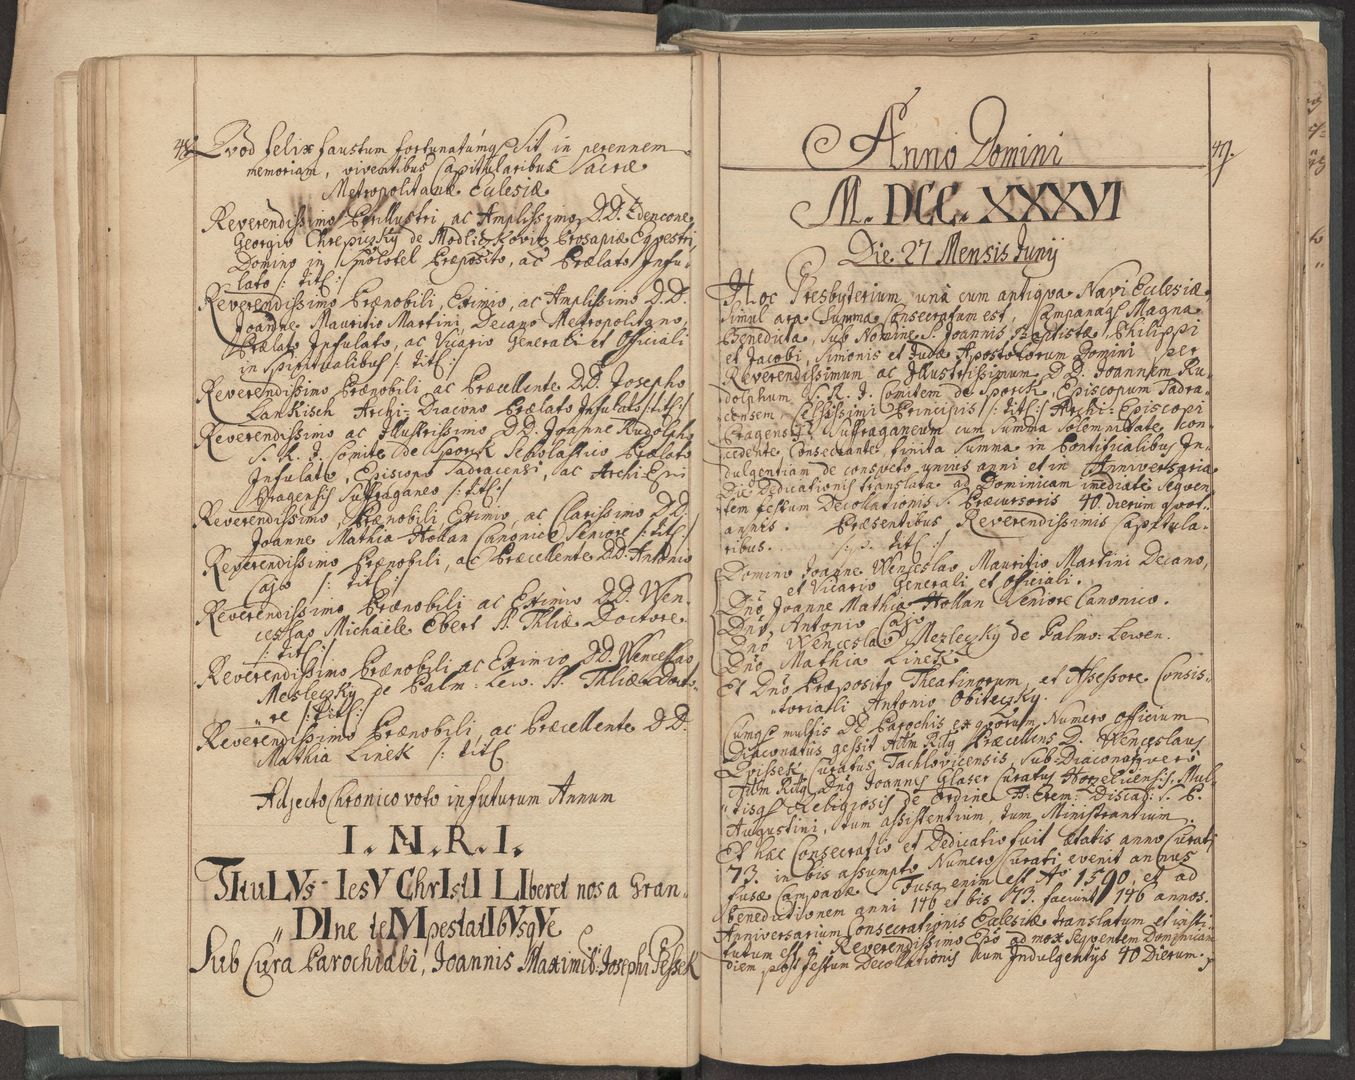 48. Qvod felix faustum fortunatumq sit in perennem
memoriam, viventibus Capitularibus Sacræ
Metropolitanæ Eclesiæ
Reverendissimo Perillustri, ac Amplissimo D.D.
Georgio Chrepiczky de Modliczkovitz Prosapiæ Eqvestri
Domino in Præposito, ac Prælato Infu-
lato /: titl :/
Reverendissimo Prænobili, Eximio, ac Amplissimo D.D.
Joanne Mauritio Martini, Decano Metropolitano,
Prælato Infulato, ac Vicario Generali et Officiali
in Spiritualibus /: titl :/
Reverendissimo Prænobili, ac Præcellente D.D. Josepho
Lankisch Archi-Diacono Prælato Infulato /: titl :/
Reverendissimo ac Illustrissimo D.D. Joanne Rudolpho
S. R. I. Comite de Sporck Scholastico Prælato
Infulato, Episcopo Tadracensi, ac Archi-Epi
Pragensis Suffraganeo /: titl :/
Reverendissimo, Prænobili, Eximio, ac Clarissimo D.D.
Joanne Mathia Hollan Canonico Seniore /: titl :/
Reverendissimo Prænobili, ac Præcellente D.D. Antonio
Cajo /: titl :/
Reverendissimo, Prænobili ac Eximio D.D. Wen-
ceslao Michaële Ebert SS. Thliæ Doctore.
/: titl :/
Reverendissimo Prænobili ac Eximio D.D. Wenceslao
Mezleczky de Palm: Lew. SS. Thliæ Docto-
re /: titl :/
Reverendissimo Prænobili, ac Præcellente D.D.
Mathia Linek /: titl
Adjecto Chronico voto in futurum Annum
I. N. R. I.
TItuLVs IesV ChrIstI LIberet nos a Gran-
DIne teMpestatIbVsqVe
Sub Cura Parochiali, Joannis Maximil: Josephi Pessek
49.
Anno Domini
M. DCC. XXXVI
Die 27 Mensis Junij
Hoc Presbyterium una cum antiqva Navi Eclesiæ,
Simul ara Summa Consecratum est, Campanaq Magna
Benedicta, Sub Nomine S. Joannis Baptistæ, Philippi
et Jacobi, Simonis et Judæ Apostolorum Domini per
Reverendissimum ac Illustrissimum D.D. Joannem Ru-
dolphum S. R. I. Comitem de Sporck, Episcopum Tadra-
censem, Celsissimi Principis /: titl :/ Archi-Episcopi
Pragensis Suffraganeum cum Summa Solemnitate Con-
cedente Consecrante, finita Summa in Pontificalibus In-
dulgentiam de consveto unius anni et in Anniversaria
Die Dedicationis translata ad Dominicam imediatè Seqven-
tem festum Decollationis S. Præcursoris 40 dierum qvot-
annis. Præsentibus Reverendissimis Capitula-
ribus. /: p. titl :/
Domino Joanne Wenceslao Mauritio Martini Decano,
et Vicario Generali et Officiali.
Dno Joanne Mathia Hollan Seniore Canonico.
Dno Antonio Cajo
Dno Wenceslao Mezleczky de Palmo: Lewen.
Dno Mathia Linek
Et Dno Præposito Theatinorum, et Assessore Consis-
toriali Antonio Obiteczky.
Cumq multis DD. Parochis ex qvorum Numero Officium
Diaconatus gessit Adm Rdg Præcellens D. Wenceslaus
Qvissek Curatus Tachlovicensis, Sub Diaconatus verò
Adm Rdg Dnq Joannes Glaser Curatus Horzelicensis, Mul-
tisq Religiosis de Ordine Erem: Discal: S. P.
Augustini, tum assistentium, tum Ministrantium.
Et hæc Consecratio et Dedicatio fuit Ætatis anno Curati
73. in bis assumpto Numero Curati evenit annus
fusæ Campanæ. Fusa enim est Ao 1590, et ad
benedictionem anni 146 et bis 73. faciunt 146 annos.
Anniversarium Consecrationis Eclesiæ translatum et insti-
tutum est à Reverendissimo Epo ad mox Seqventem Dominicam
diem post festum Decollationis cum Indulgentijs 40 Dierum.